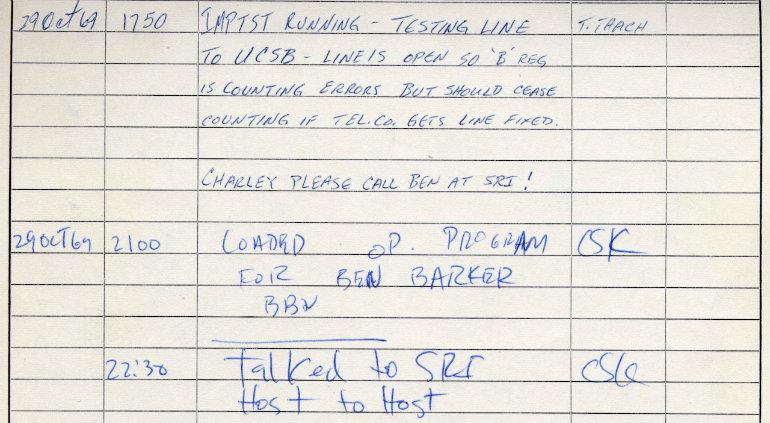 29Oct69 1750 IMPTST RUNNING - TESTING LINE T. THACH
TO UCSB - LINE IS OPEN SO 'B' REG
IS COUNTING ERRORS BUT SHOULD CEASE
COUNTING IF TEL.CO. GETS LINE FIXED.
CHARLEY PLEASE CALL BEN AT SRI!
29OCT69 2100 LOADED OP. PROGRAM CSK
FOR BEN BARKER
BBN
22:30 Talked to SRI CSK
Host to Host